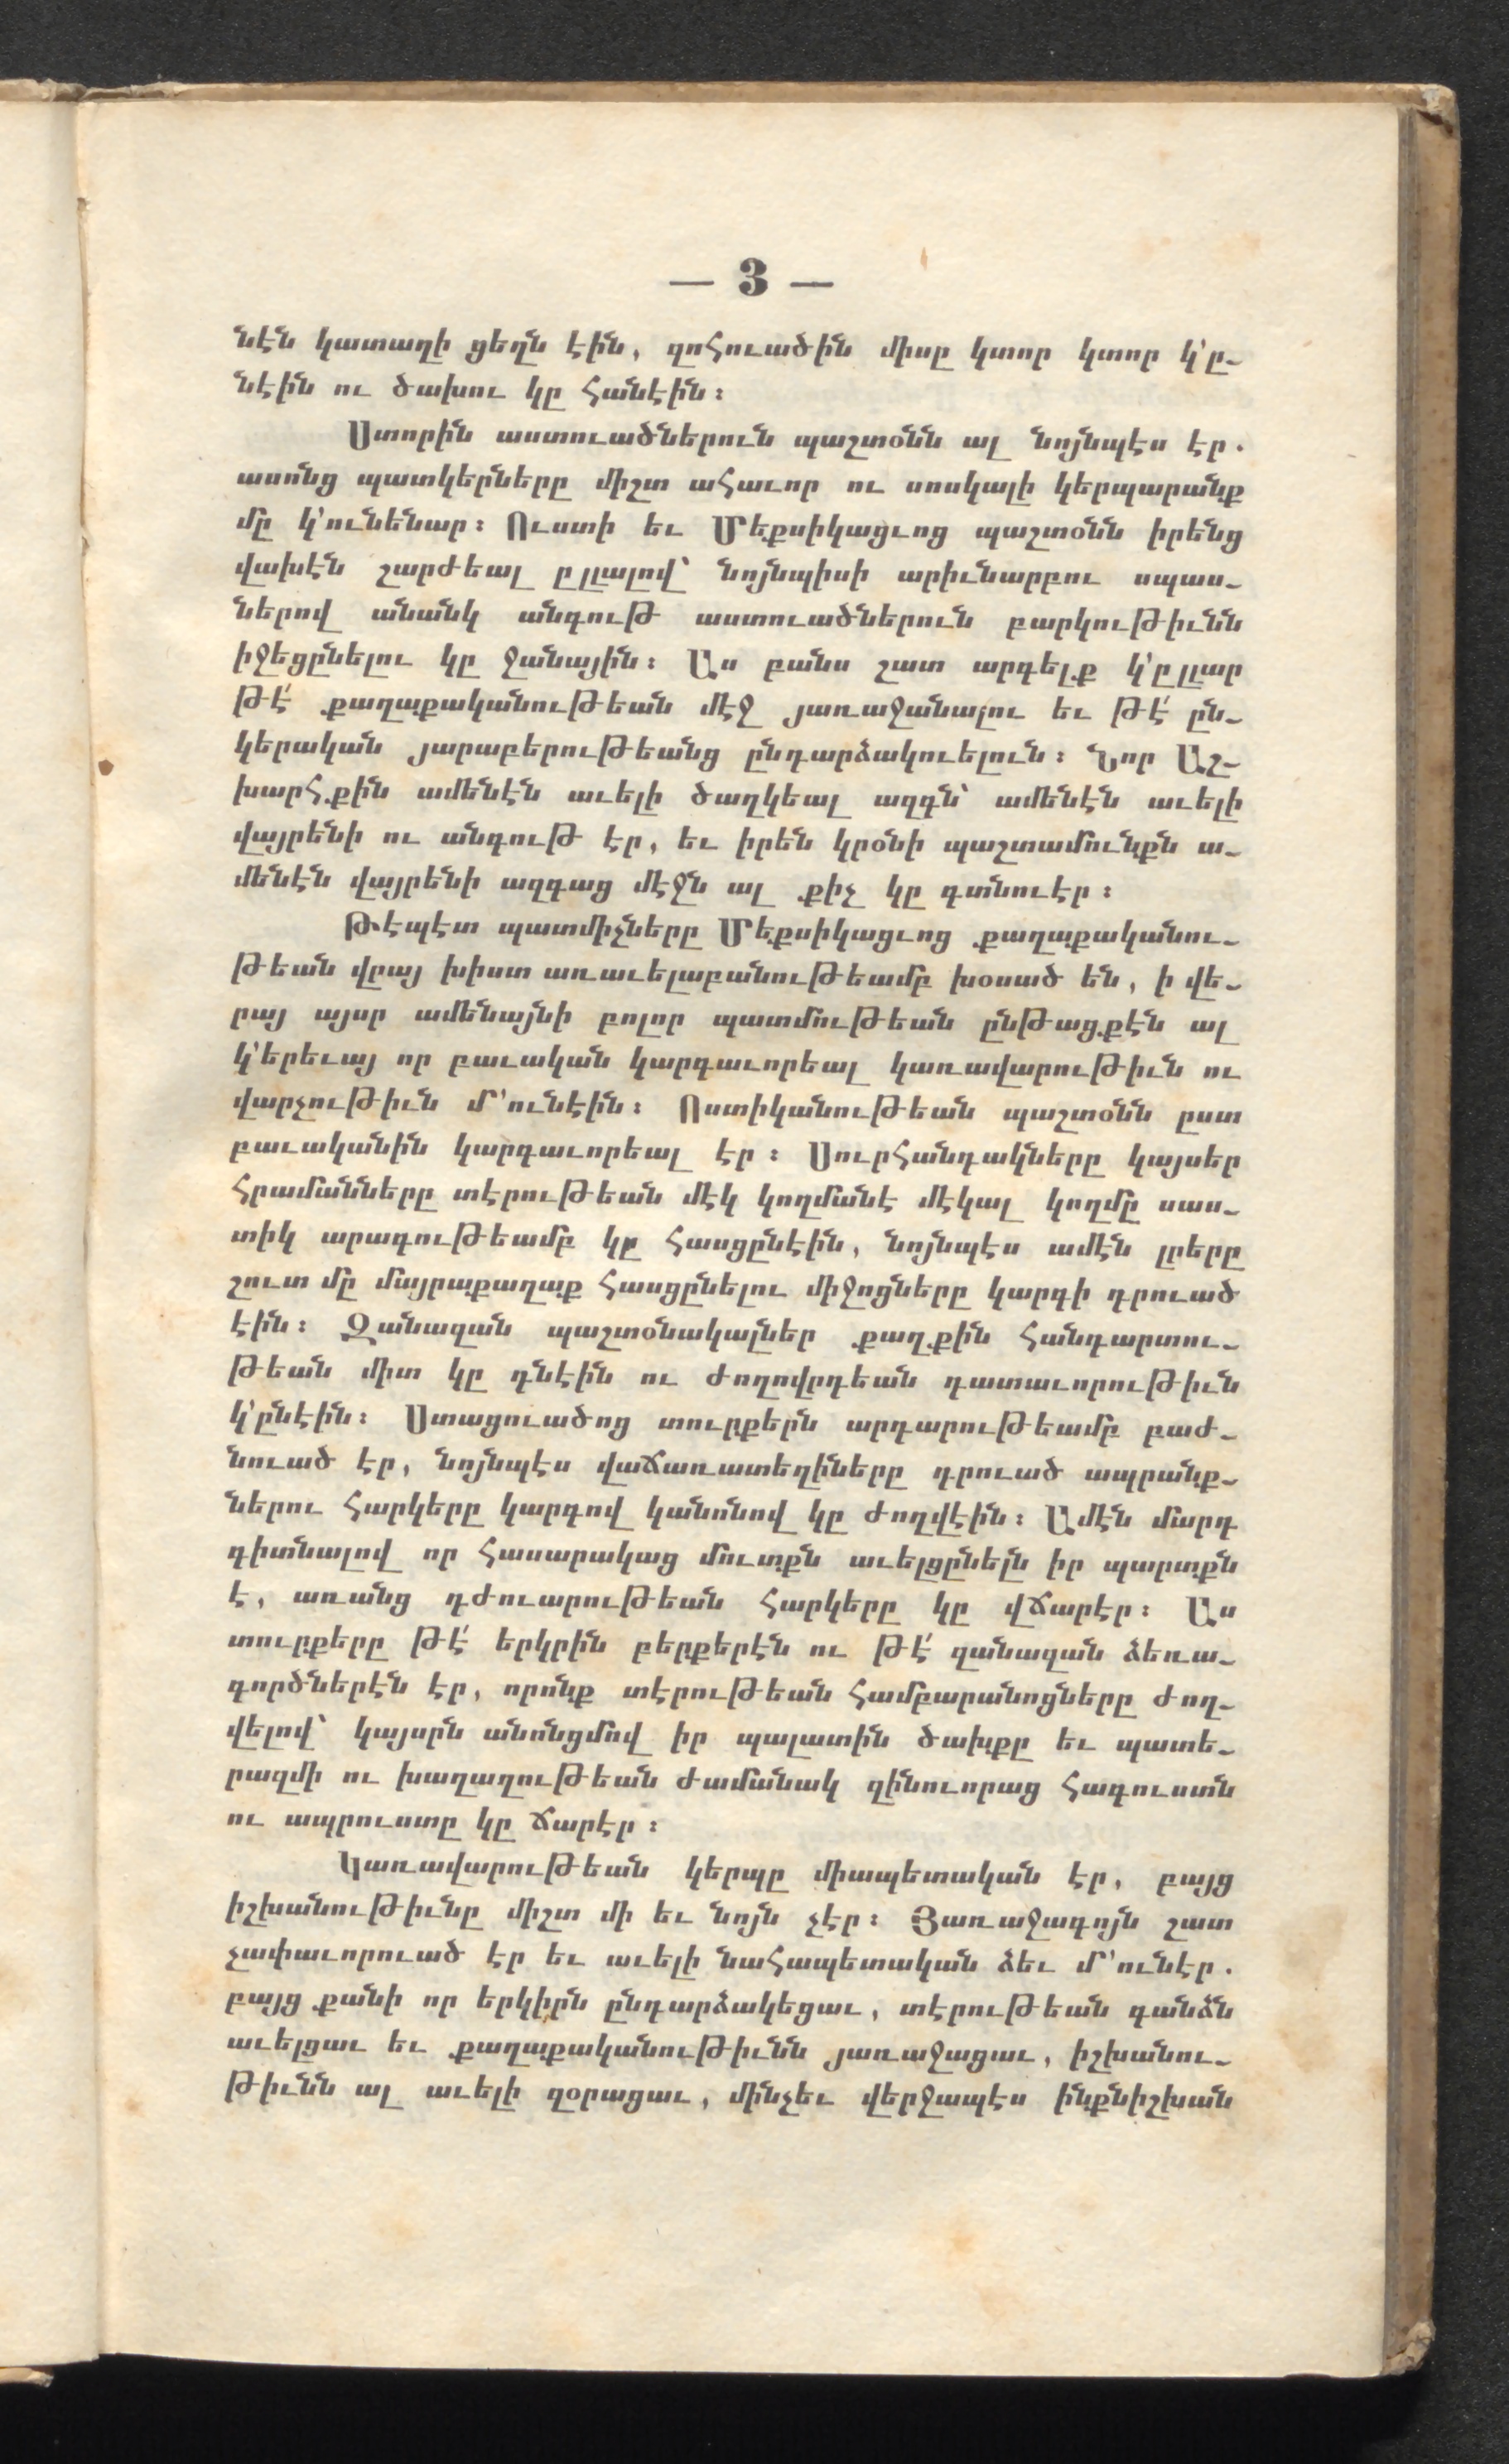 — 3 —
նէն կատաղի ցեղն էին, զոհուածին միսը կտոր կտոր կ՚ը-
նէին ու ծախու կը հանէին։
Ստորին աստուածներուն պաշտօնն ալ նոյնպէս էր.
ասոնց պատկերները միշտ ահաւոր ու սոսկալի կերպարանք
մը կ՚ունենար։ Ուստի եւ Մեքսիկացւոց պաշտօնն իրենց
վախէն շարժեալ ըլլալով՝ նոյնպիսի արիւնարբու սպաս-
ներով անանկ անգութ աստուածներուն բարկութիւնն
իջեցընելու կը ջանային։ Աս բանս շատ արգելք կ՚ըլլար
թէ՛ քաղաքականութեան մէջ յառաջանալու եւ թէ՛ ըն-
կերական յարաբերութեանց ընդարձակուելուն։ Նոր Աշ-
խարհքին ամենէն աւելի ծաղկեալ ազգն՝ ամենէն աւելի
վայրենի ու անգութ էր, եւ իրեն կրօնի պաշտամունքն ա-
մենէն վայրենի ազգաց մէջն ալ քիչ կը գտնուէր։
Թէպէտ պատմիչները Մեքսիկացւոց քաղաքականու-
թեան վրայ խիստ առաւելաբանութեամբ խօսած են, ի վե-
րայ այսր ամենայնի բոլոր պատմութեան ընթացքէն ալ
կ՚երեւայ որ բաւական կարգաւորեալ կառավարութիւն ու
վարչութիւն մ՚ունէին։ Ոստիկանութեան պաշտօնն ըստ
բաւականին կարգաւորեալ էր։ Սուրհանդակները կայսեր
հրամանները տէրութեան մէկ կողմանէ մէկալ կողմը սաս-
տիկ արագութեամբ կը հասցընէին, նոյնպէս ամէն լրերը
շուտ մը մայրաքաղաք հասցընելու միջոցները կարգի դրուած
էին։ Զանազան պաշտօնակալներ քաղքին հանդարտու-
թեան միտ կը դնէին ու ժողովրդեան դատաւորութիւն
կ՚ընէին։ Ստացուածոց տուրքերն արդարութեամբ բաժ-
նուած էր, նոյնպէս վաճառատեղիները դրուած ապրանք-
ներու հարկերը կարգով կանոնով կը ժողվէին։ Ամէն մարդ
գիտնալով որ հասարակաց մուտքն աւելցընելն իր պարտքն
է, առանց դժուարութեան հարկերը կը վճարէր։ Աս
տուրքերը թէ՛ երկրին բերքերէն ու թէ՛ զանազան ձեռա-
գործներէն էր, որոնք տէրութեան համբարանոցները ժող-
վելով՝ կայսրն անոնցմով իր պալատին ծախքը եւ պատե-
րազմի ու խաղաղութեան ժամանակ զինուորաց հագուստն
ու ապրուստը կը ճարէր։
Կառավարութեան կերպը միապետական էր, բայց
իշխանութիւնը միշտ մի եւ նոյն չէր։ Յառաջագոյն շատ
չափաւորուած էր եւ աւելի նահապետական ձեւ մ՚ունէր.
բայց քանի որ երկիրն ընդարձակեցաւ, տէրութեան գանձն
աւելցաւ եւ քաղաքականութիւնն յառաջացաւ, իշխանու-
թիւնն ալ աւելի զօրացաւ, մինչեւ վերջապէս ինքնիշխան